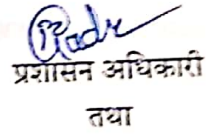 प्रशासन अधिकारी
तथा